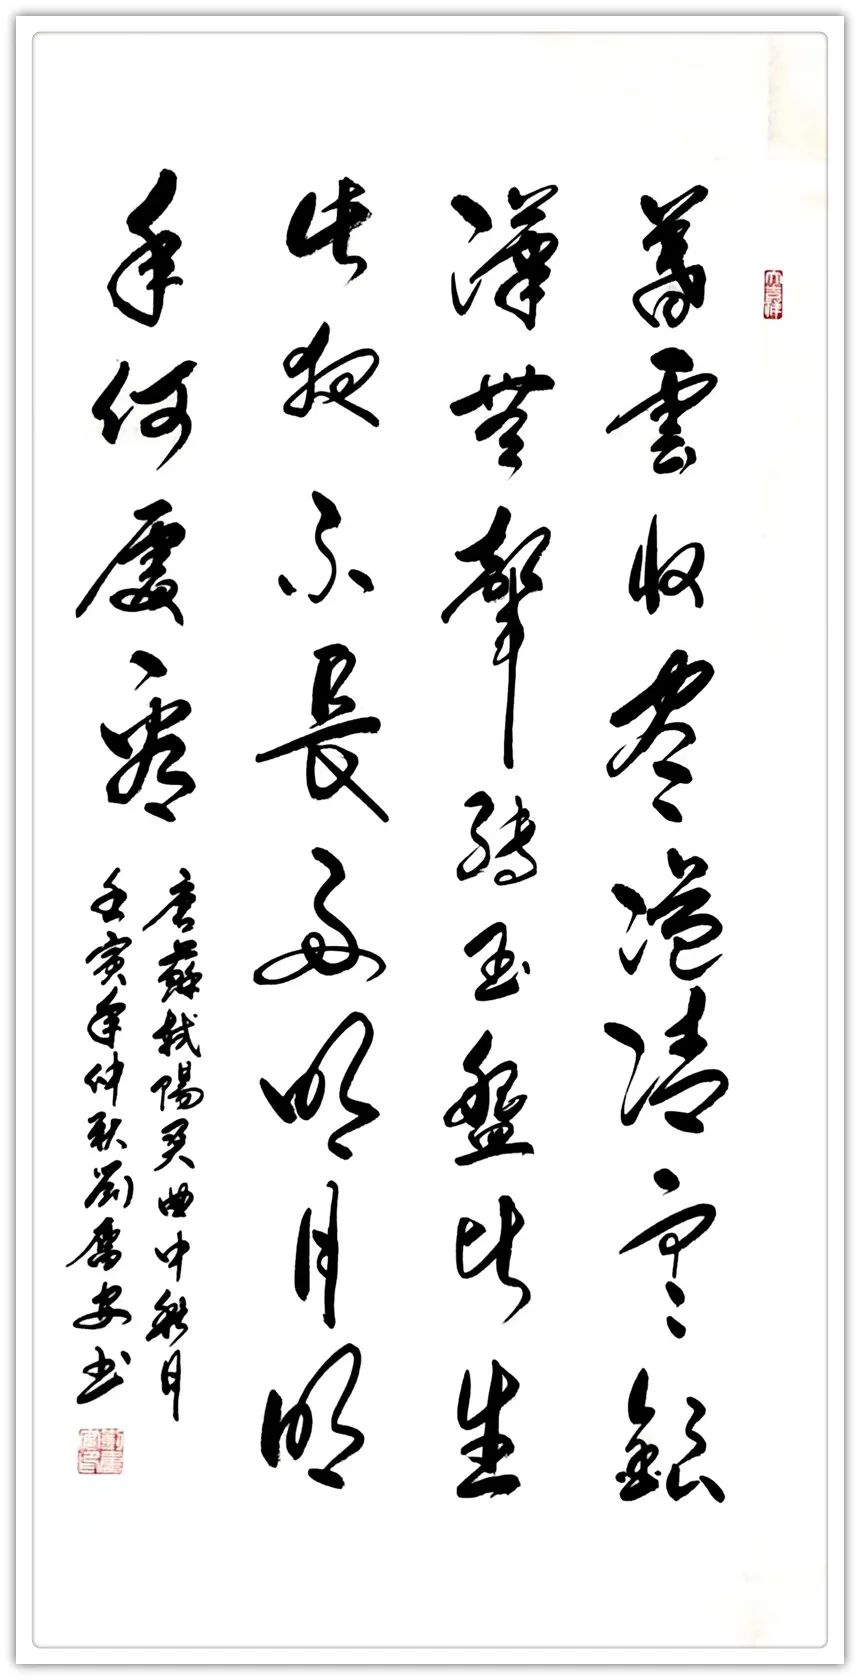 暮雲收盡溢清寒銀
漢無聲轉玉盤此生
此夜不長好明月明
年何處看
唐蘇軾陽关曲中秋月
壬寅年仲秋劉安书
大吉祥